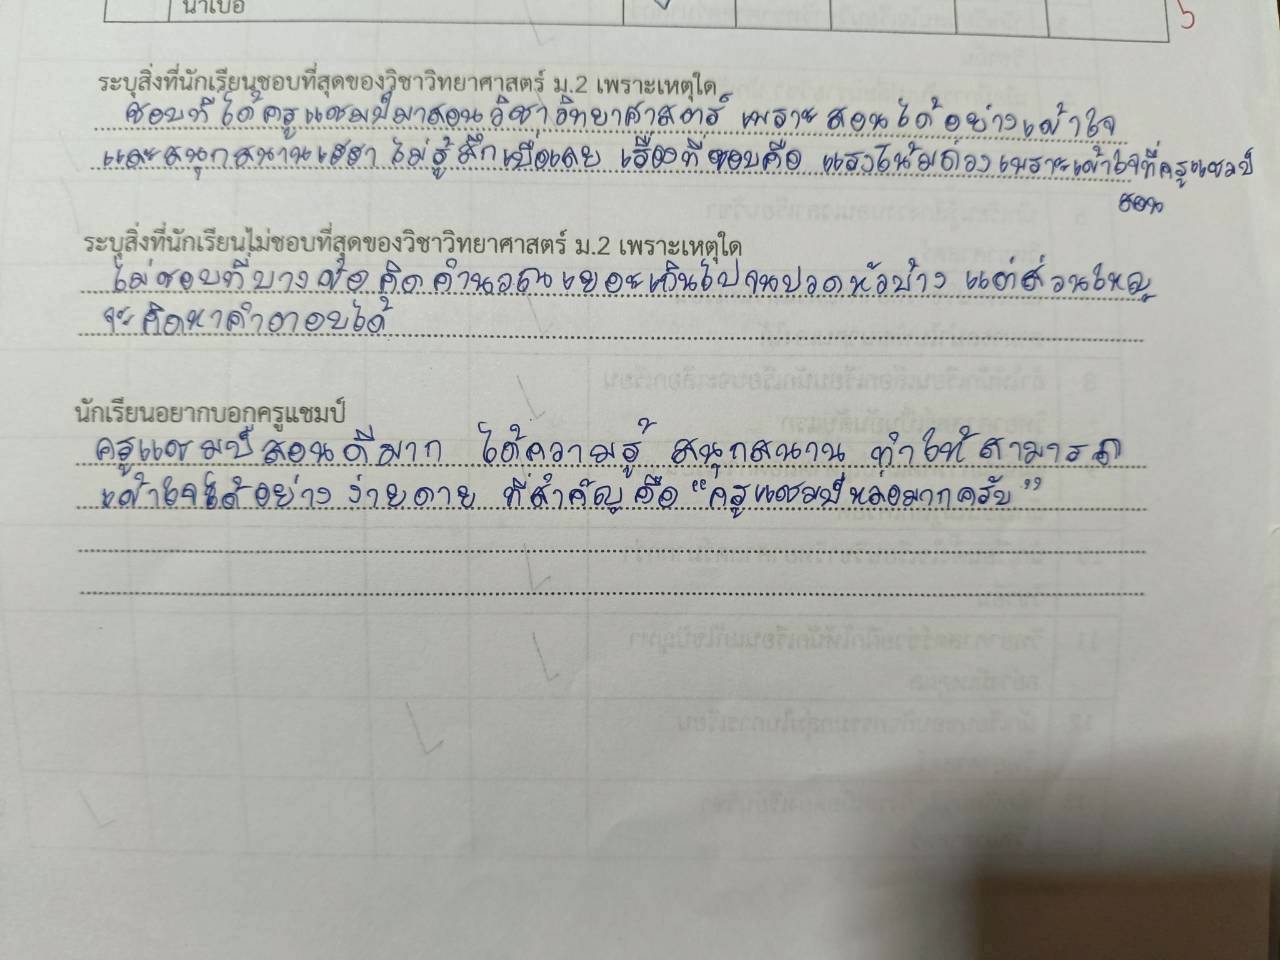 น่าเบื่อ
5
ระบุสิ่งที่นักเรียนชอบที่สุดของวิชาวิทยาศาสตร์ ม.2 เพราะเหตุใด
ชอบที่ได้ครูแชมป์มาสอนวิชาวิทยาศาสตร์ เพราะสอนได้อย่างเข้าใจ
และสนุกสนานเฮฮา ไม่รู้สึกเบื่อเลย เรื่องที่ชอบคือ แรงโน้มถ่วงเพราะเข้าใจที่ครูแชมป์
สอน
ระบุสิ่งที่นักเรียนไม่ชอบที่สุดของวิชาวิทยาศาสตร์ ม.2 เพราะเหตุใด
ไม่ชอบที่บางข้อคิดคำนวณเยอะเกินไปจนปวดหัวบ้าง แต่ส่วนใหญ่
จะคิดหาคำตอบได้
นักเรียนอยากบอกครูแชมป์
ครูแชมป์สอนดีมาก ได้ความรู้ สนุกสนาน ทำให้สามารถ
เข้าใจได้อย่างง่ายดาย ที่สำคัญคือ "ครูแชมป์หล่อมากครับ"